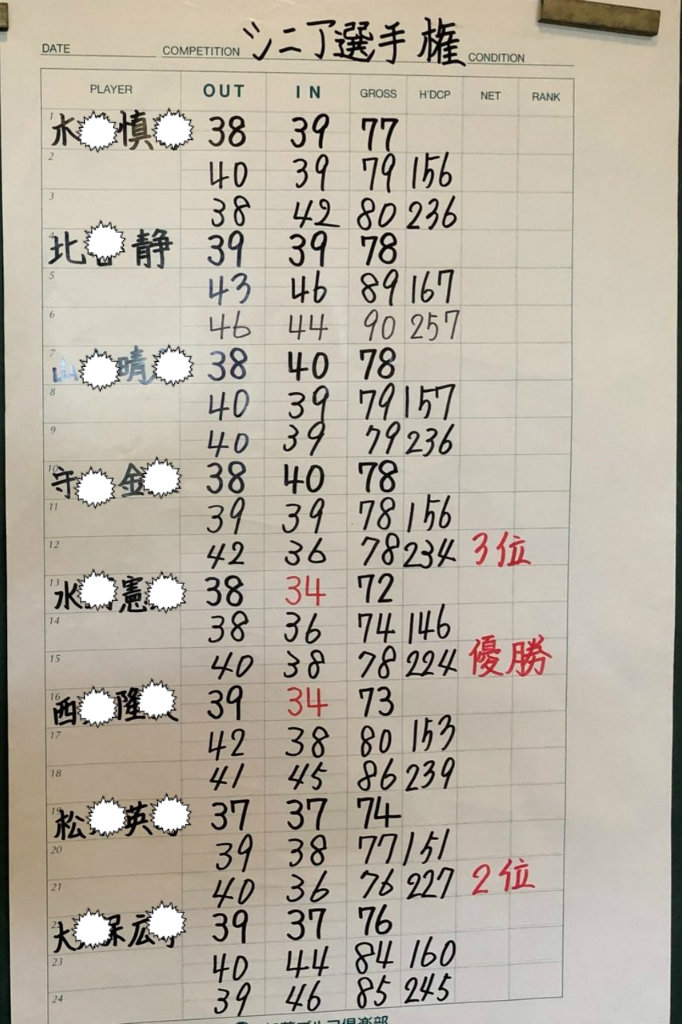 DATE COMPETITION シニア選手権 CONDITION
PLAYER OUT IN GROSS H'DCP NET RANK
1 水 慎 38 39 77
2 40 39 79 156
3 38 42 80 236
4 北 静 39 39 78
5 43 46 89 167
6 46 44 90 257
7 山 晴 38 40 78
8 40 39 79 157
9 40 39 79 236
10 守 金 38 40 78
11 39 39 78 156
12 42 36 78 234 3位
13 水 憲 38 34 72
14 38 36 74 146
15 40 38 78 224 優勝
16 西 隆 39 34 73
17 42 38 80 153
18 41 45 86 239
19 松 英 37 37 74
20 39 38 77 151
21 40 36 76 227 2位
大 保 広 39 37 76
23 40 44 84 160
24 39 46 85 245
ゴルフ倶楽部